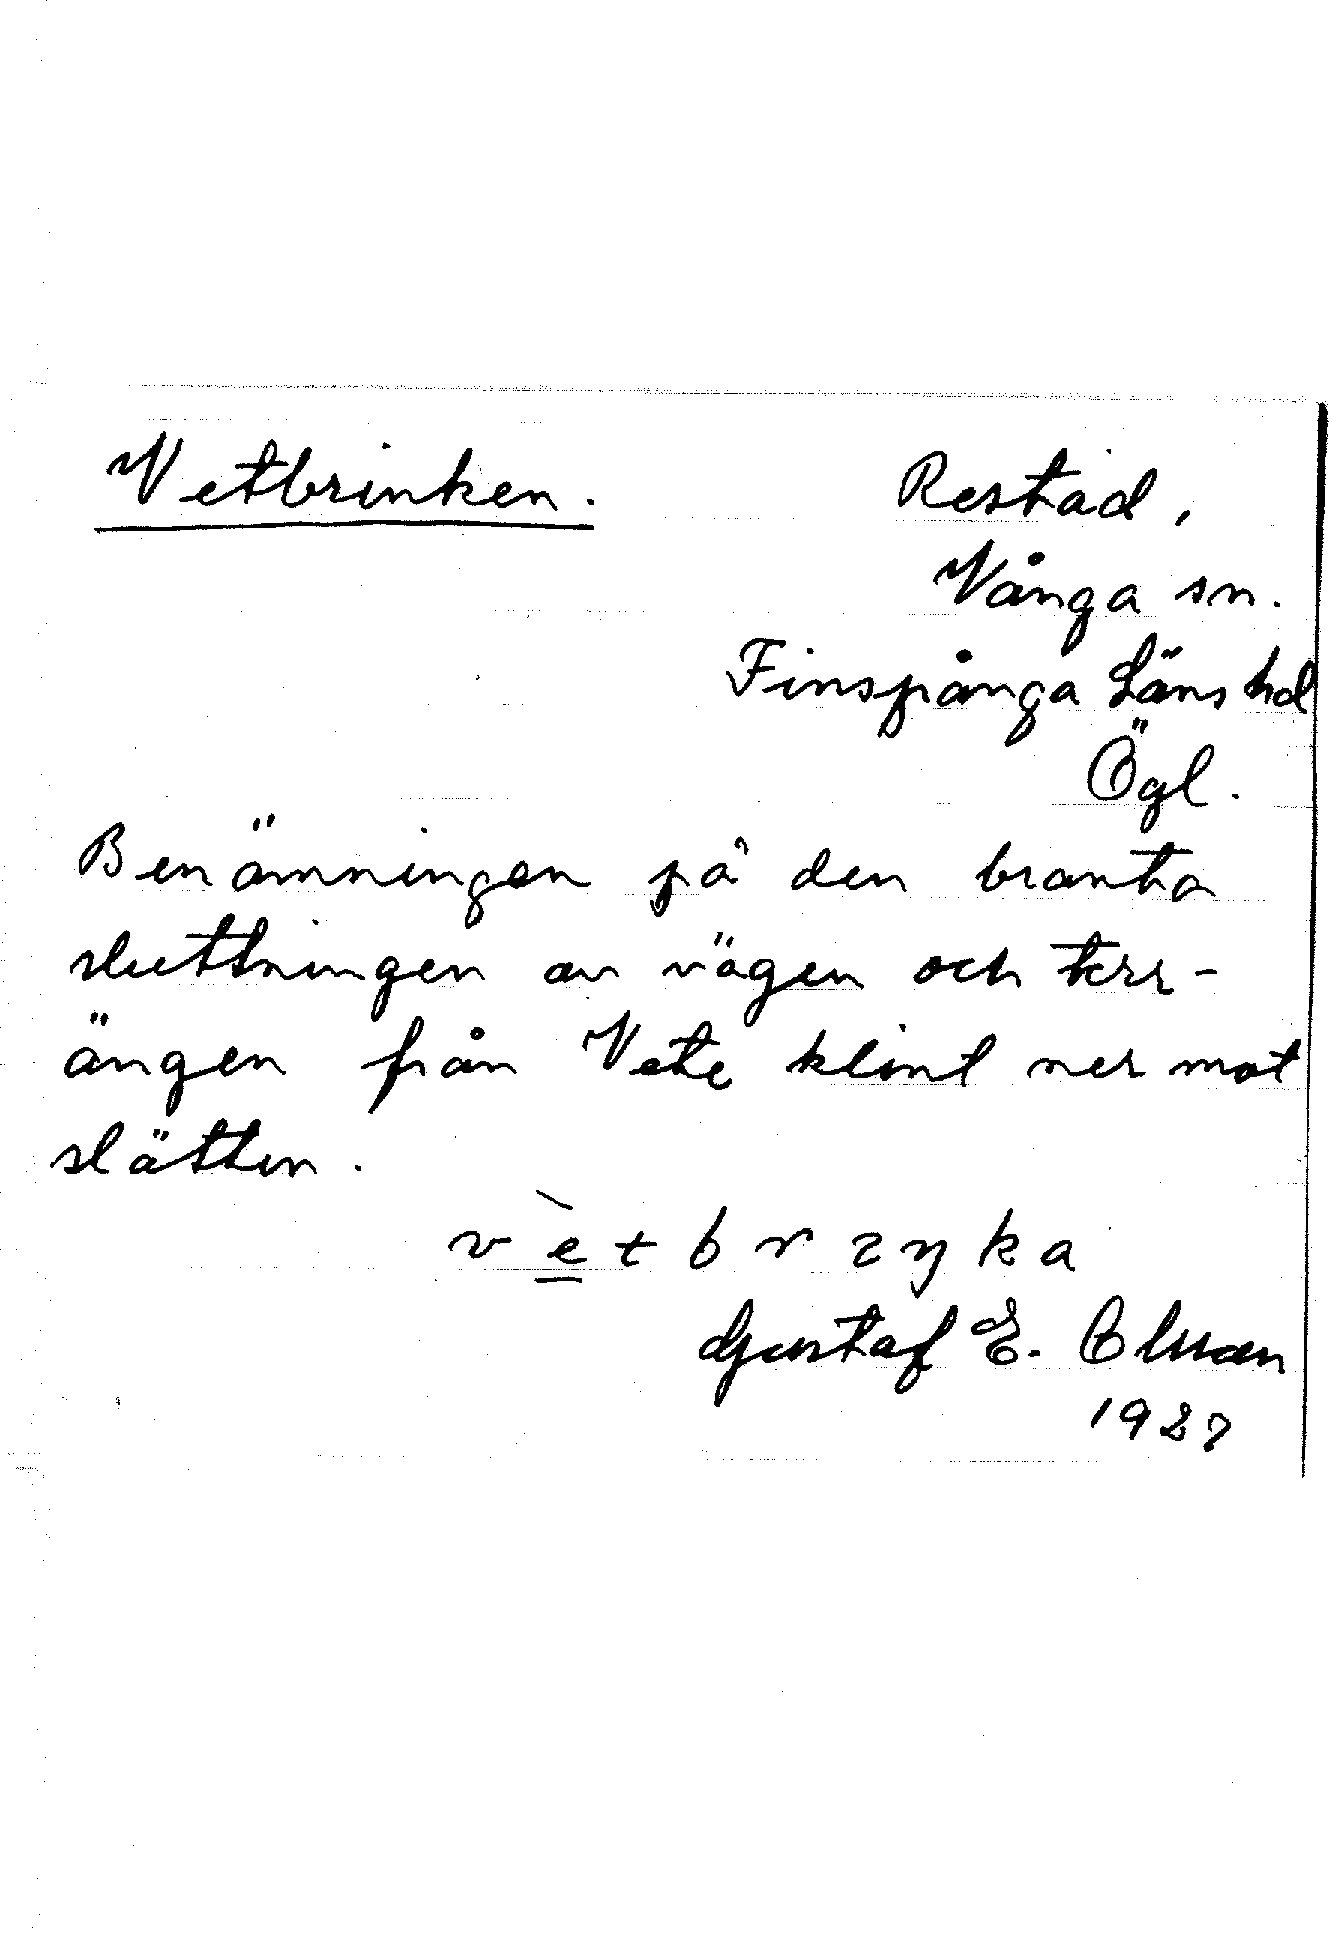 Vetbrinken.
Restad,
Vånga sn.
Finspånga Läns hd
Ögl.
Benämningen på den branta
sluttningen av vägen och terr-
ängen från Vete klint ner mot
slätten.
vètbrɩŋka
Gustaf E. Olsson
1927